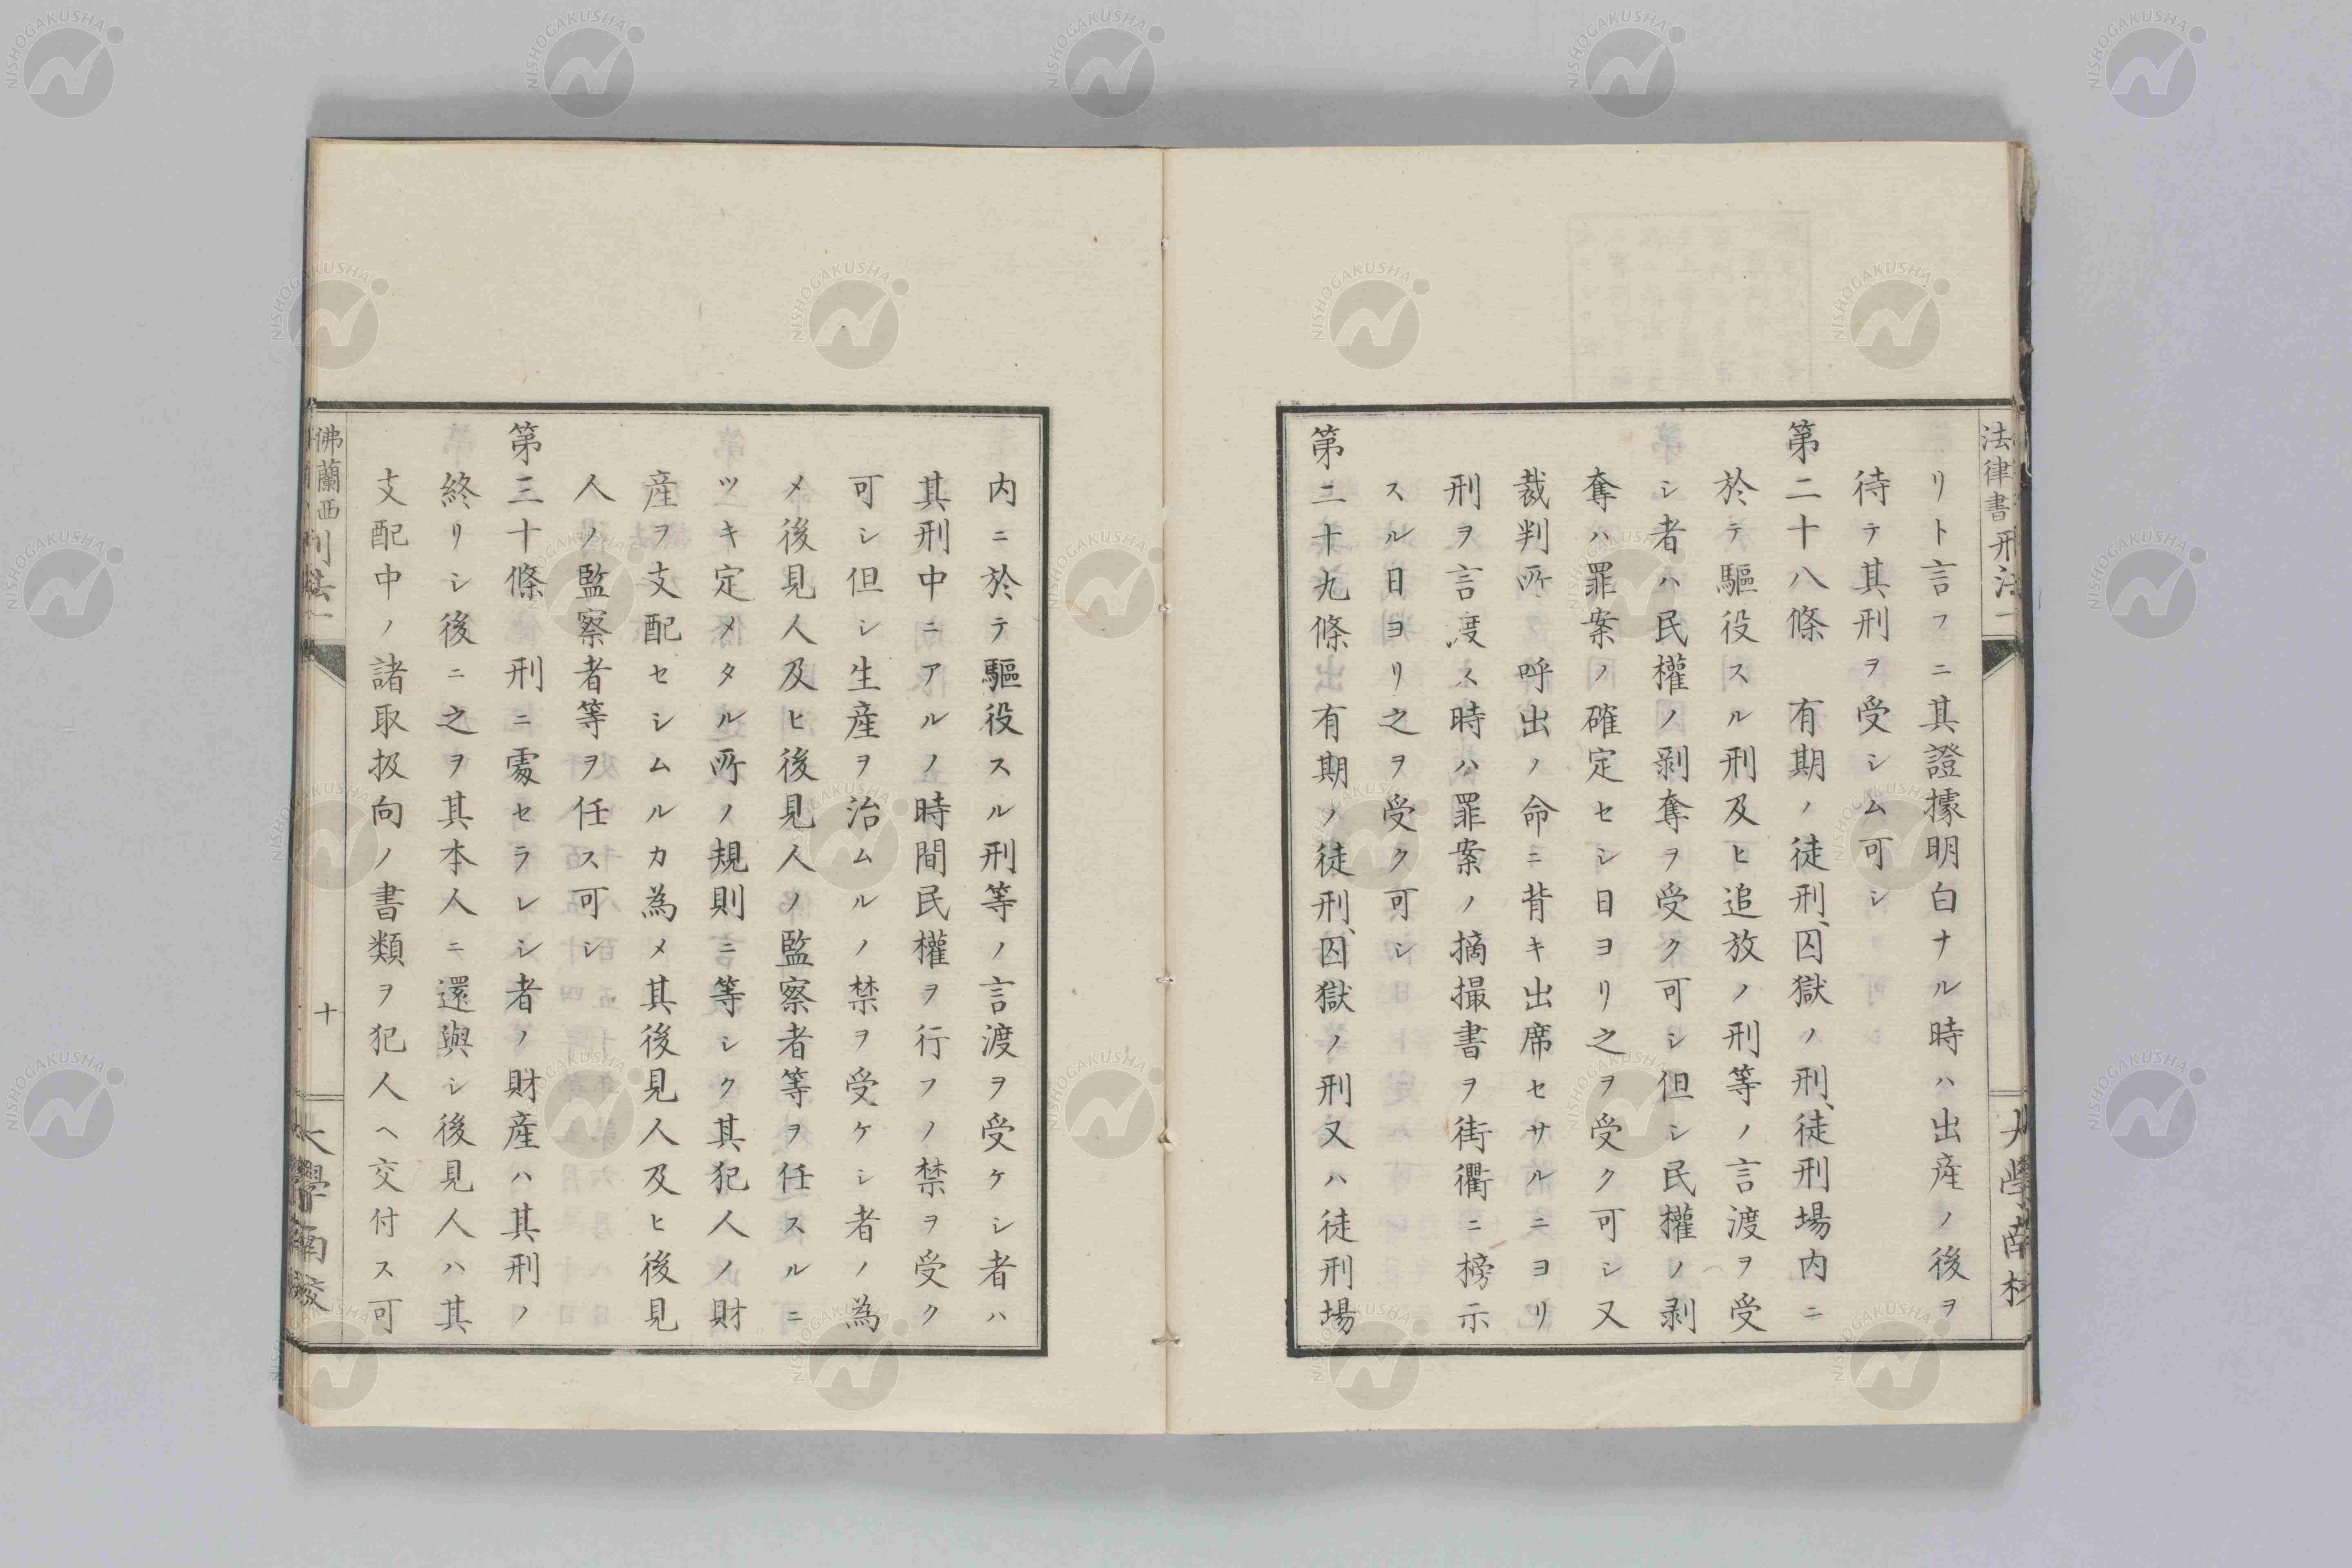 リト言フニ其證據明白ナル時ハ出産ノ後ヲ
待テ其刑ヲ受シム可シ
第二十八條 有期ノ徒刑、囚獄ノ刑、徒刑場内ニ
於テ驅役スル刑及ヒ追放ノ刑等ノ言渡ヲ受
シ者ハ民權ノ剥奪ヲ受ク可シ但シ民權ノ剥
奪ハ罪案ノ確定セシ日ヨリ之ヲ受ク可シ又
裁判所ヘ呼出ノ命ニ背キ出席セサルニヨリ
刑ヲ言渡ス時ハ罪案ノ摘撮書ヲ街衢ニ榜示
スル日ヨリ之ヲ受ク可シ
第二十九條 有期ノ徒刑、囚獄ノ刑又ハ徒刑場
内ニ於テ驅役スル刑等ノ言渡ヲ受ケシ者ハ
其刑中ニアルノ時間民權ヲ行フノ禁ヲ受ク
可シ但シ生産ヲ治ムルノ禁ヲ受ケシ者ノ為
メ後見人及ヒ後見人ノ監察者等ヲ任スルニ
ツキ定メタル所ノ規則ニ等シク其犯人ノ財
産ヲ支配セシムルカ為メ其後見人及ヒ後見
人ノ監察者等ヲ任ス可シ
第三十條 刑ニ處セラレシ者ノ財産ハ其刑ノ
終リシ後ニ之ヲ其本人ニ還與シ後見人ハ其
支配中ノ諸取扱向ノ書類ヲ犯人ヘ交付ス可
法律書 刑法一
大學南校
佛蘭西 刑法一
十
大學南校
NISHOGAKUSHA